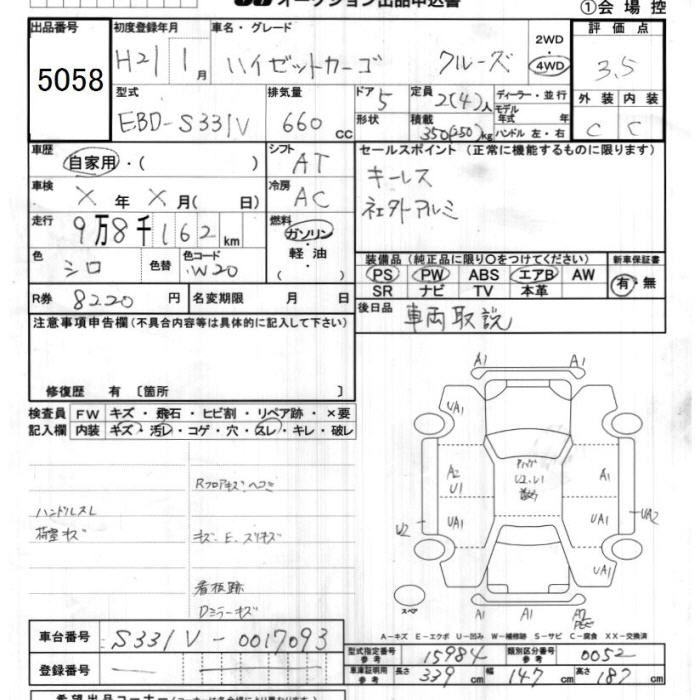 オークション出品申込書
①会場控
出品番号 初度登録年月 車名・グレード 2WD・4WD 評価点
5058 H21 1月 ハイゼットカーゴ クルーズ 3.5
型式 排気量 ドア 5 定員 2(4)人 ディーラー・並行 外装 内装
EBD-S331V 660cc 形状 積載 350(250)kg モデル年式 年 ハンドル 左・右 C C
車歴 自家用・( ) シフト AT セールスポイント(正常に機能するものに限ります)
車検 X年X月( 日) 冷房 AC キーレス
走行 9万8千162km 燃料 ガソリン・軽油( ) 社外アルミ
色 シロ 色替 色コード W20
装備品(純正品に限り○をつけてください) 新車保証書
PS PW ABS エアB AW 有・無
SR ナビ TV 本革
R券 8220円 名変期限 月 日 後日品 車両取説
注意事項申告欄(不具合内容等は具体的に記入して下さい)
修復歴 有〔箇所 〕
検査員 FW キズ・飛石・ヒビ割・リペア跡・×要
記入欄 内装 キズ・汚レ・コゲ・穴・スレ・キレ・破レ
A1 A1
UA1 UA1
Rフロアキズヘコミ A2 U1 U2.U1 A1
ハンドルスレ UA1 UA1 UA2
荷室キズ キズ.E.スリキズ U2
UA1 UA1
看板跡 スペア
Dミラーキズ A1 A1 A2
A-キズ E-エクボ U-凹み W-補修跡 S-サビ C-腐食 XX-交換済
車台番号 S331V-0017093 型式指定番号 参考 15984 類別区分番号 参考 0052
登録番号 車庫証明用 参考 長さ 339cm 幅 147cm 高さ 187cm
希望出品コーナー